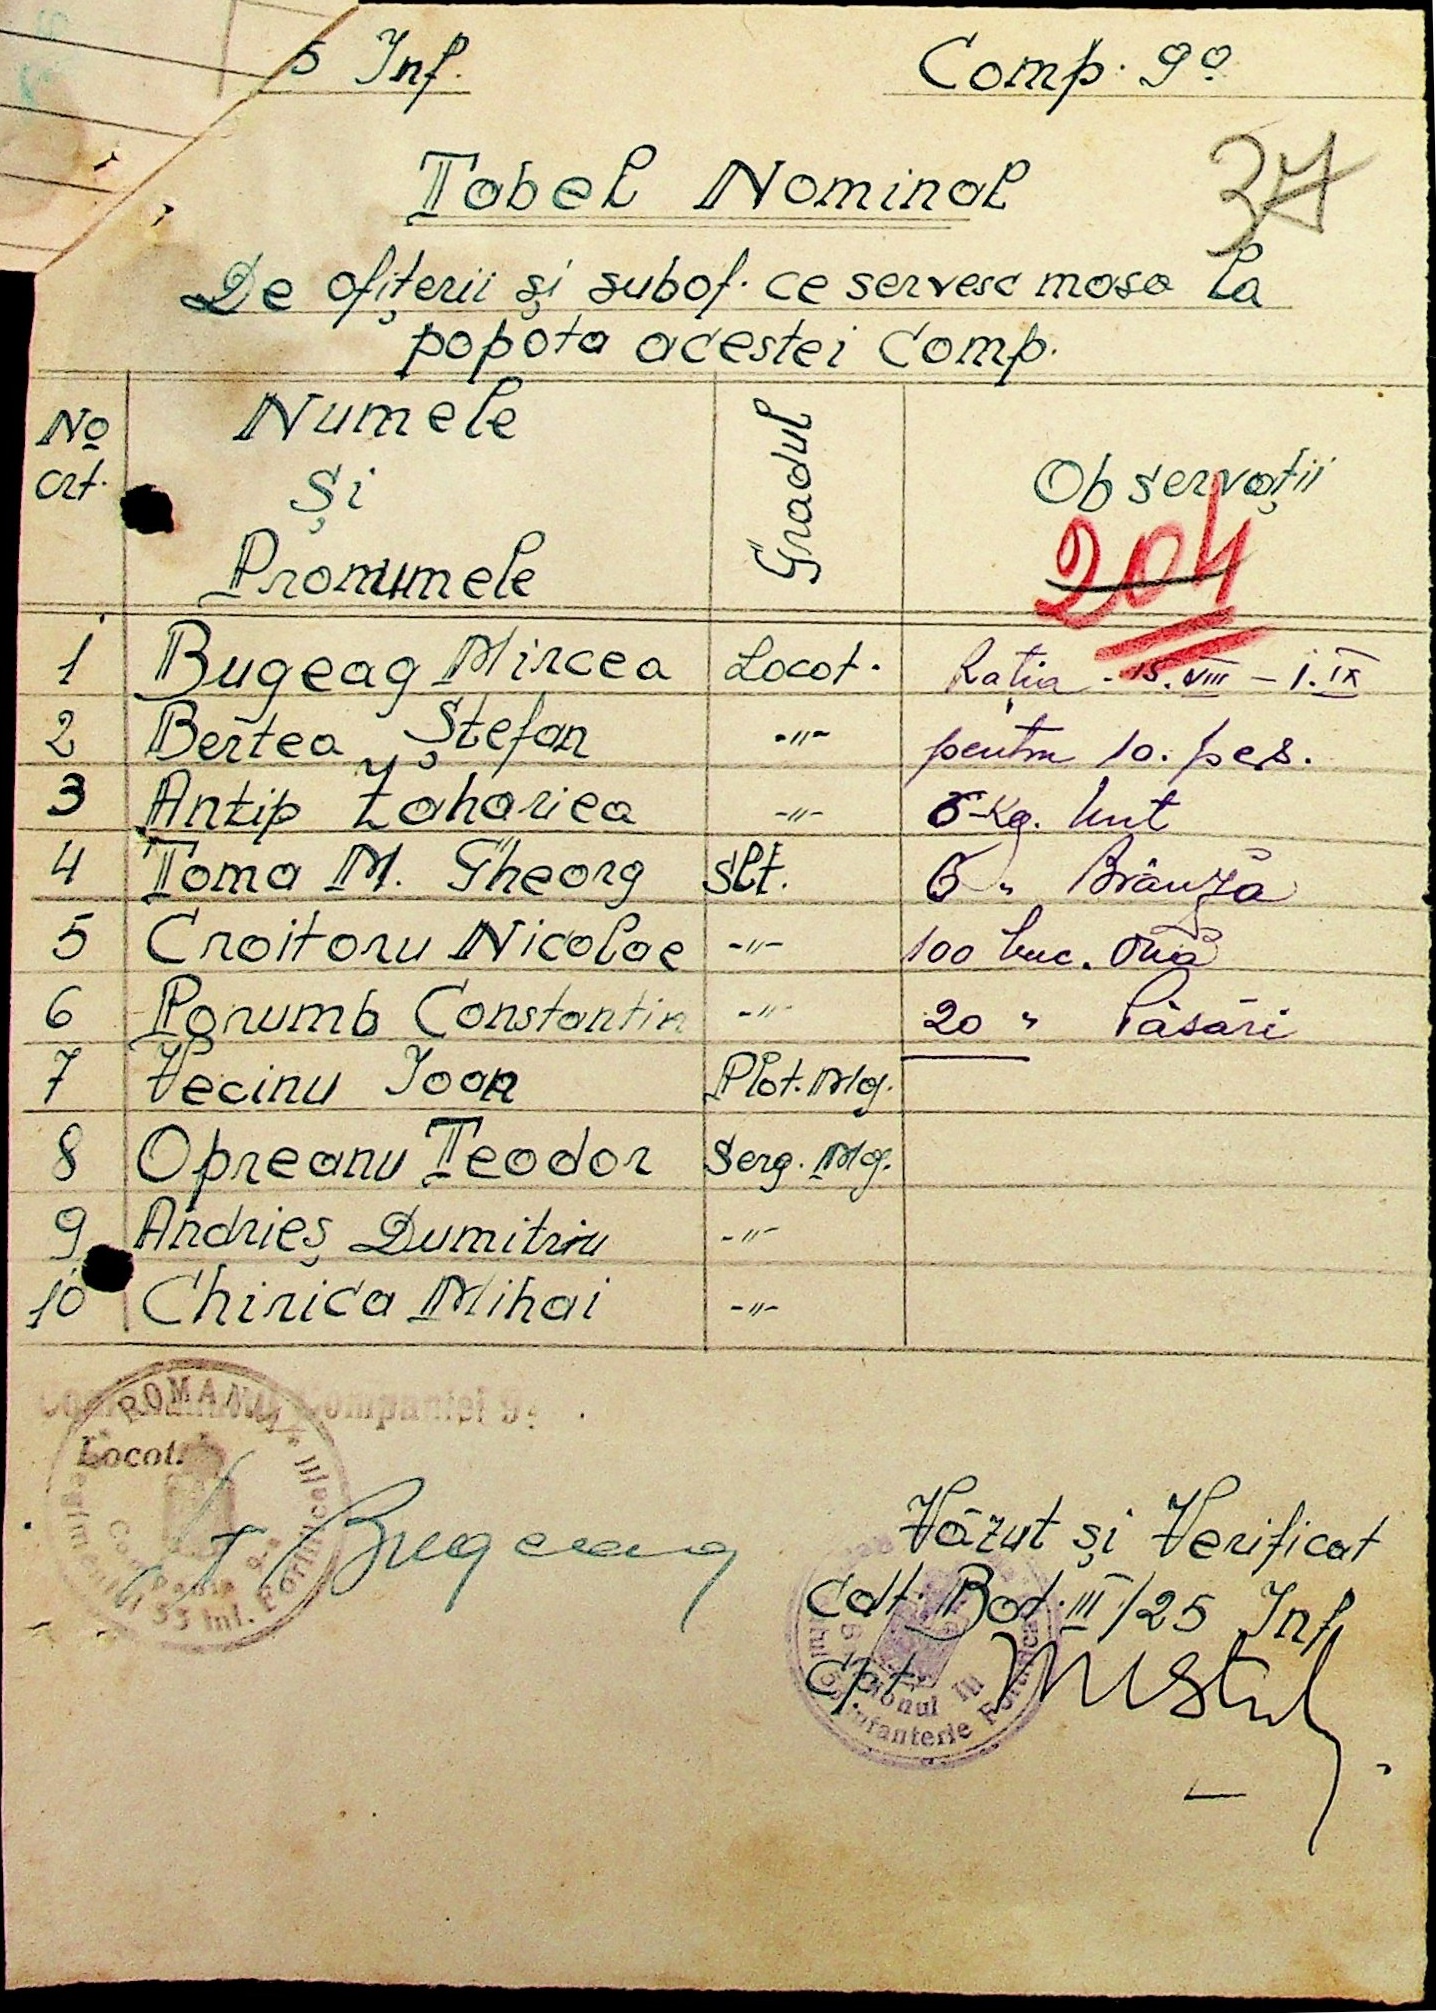 5 Inf. Comp. 9ª
37
Tabel Nominal
De ofițerii și subof. ce servesc masa la
popota acestei Comp.
No crt. Numele și Pronumele Gradul Observații
204
1 Bugeag Mircea Locot. Rația - 15.VIII - 1.IX
2 Bertea Ștefan -"- pentru 10. pers.
3 Antip Zahariea -"- 5 Kg. Unt
4 Toma M. Gheorg Slt. 6 " Brânză
5 Croitoru Nicolae -"- 100 buc. Ouă
6 Porumb Constantin -"- 20 " Păsări
7 Vecinu Ioan Plot. Mg.
8 Opreanu Teodor Serg. Mg.
9 Andrieș Dumitriu -"-
10 Chirica Mihai -"-
Companiei 9.
Locot.
Bugeag
Văzut și Verificat
Cdt. Bat. III/25 Inf
Cpt.